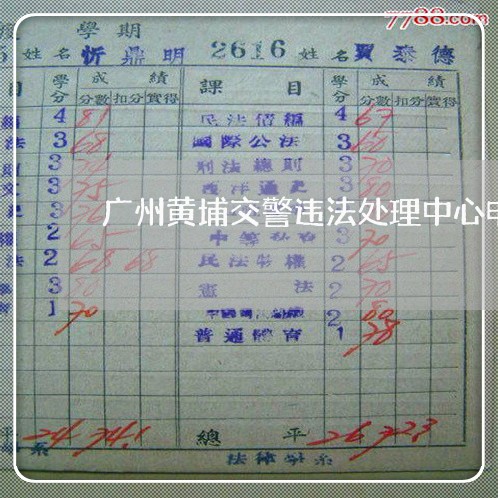 7788.com
學期
姓名 忻鼎明 2616 姓名 賈泰德
目 學分 成績 課目 學分 成績
分數 扣分 實得 分數 扣分 實得
4 81 民法債編 4 67
法 3 68 國際公法 3 60
3 刑法總則 3 70
3 75 西洋通史 3 80
广州黄埔交警违法处理中心电
2 65 3 70
法 2 68 68 民法物權 2 65
3 80 憲法 2 70
1 70 2 80
普通體育 1 78
平 24 74.1 總平 26 72.3
系 法律學系